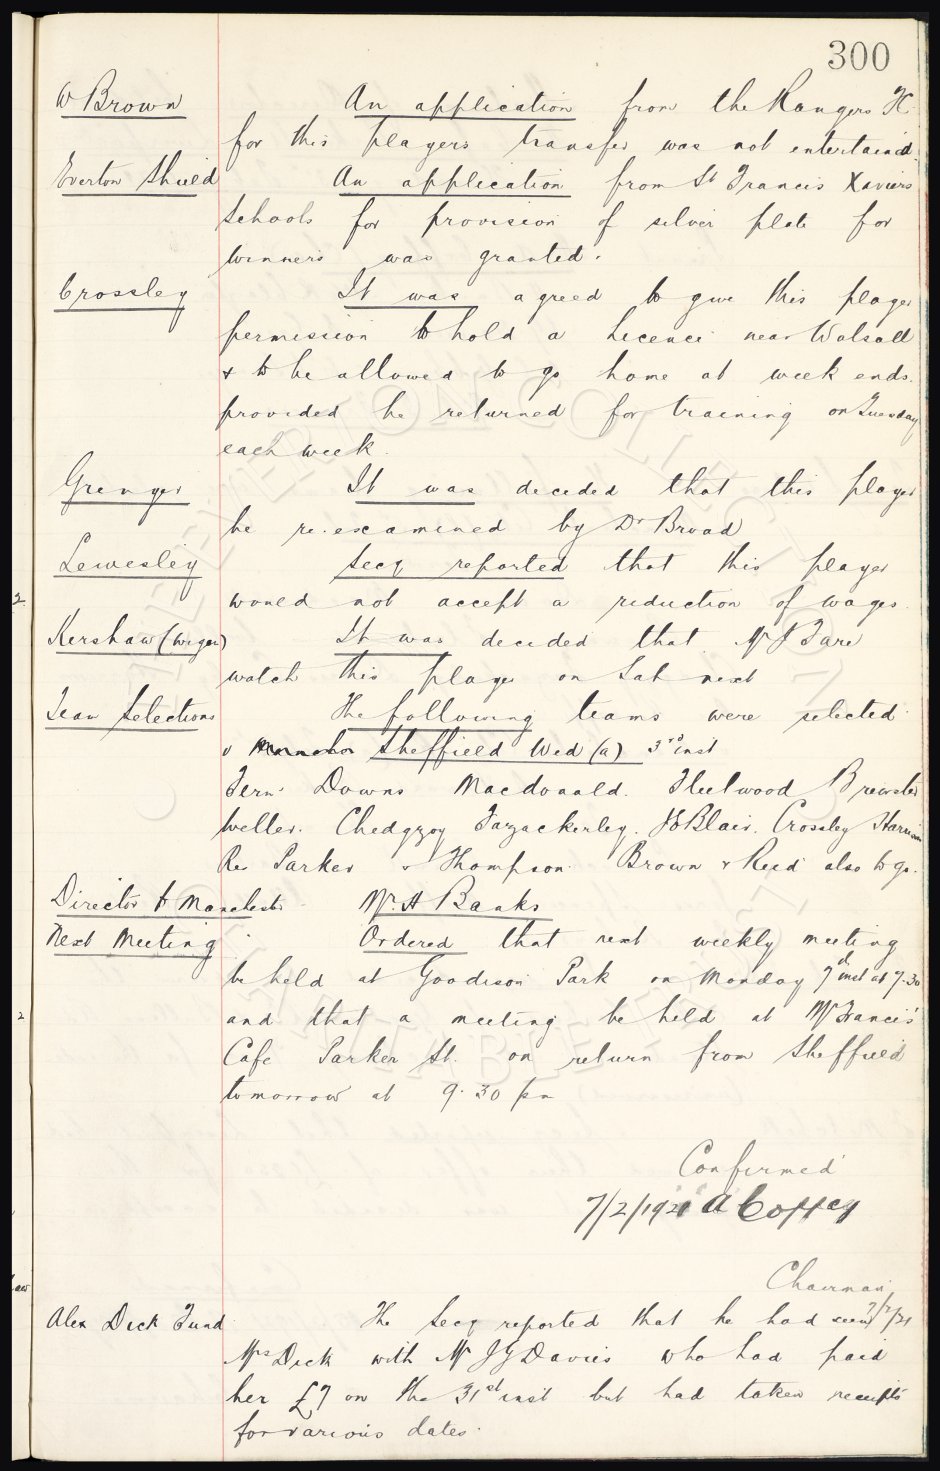 300
W Brown An application from the Rangers FC
for this players transfer was not entertained.
Everton Shield An application from St Francis Xaviers
Schools for provision of silver plate for
winners was granted.
Crossley It was agreed to give this player
permission to hold a licence near Walsall
& to be allowed to go home at week ends.
provided he returned for training on Tuesday
each week.
Grenyer It was decided that this player
be re-examined by Dr Broad
Lewesley Secy reported that this player
would not accept a reduction of wages.
Kershaw (Wigan) It was decided that Mr J Fare
watch this player on Sat next
Team Selections The following teams were selected
v Sheffield Wed (a) 3rd inst
Fern. Downs Macdonald. Fleetwood Brewster
Weller. Chedgzoy Fazackerley. JE Blair. Crossley Harrison
Res Parker & Thompson. Brown & Reid also to go.
Director to Manchester Mr. A Banks
Next Meeting Ordered that next weekly meeting
be held at Goodison Park on Monday 7th inst at 7.30
and that a meeting be held at Mr Francis'
Cafe Parker St. on return from Sheffield
tomorrow at 9.30 pm
Confirmed
7/2/1921 A Coffey
Chairman
7/2/21
Alex Dick Fund The Secy reported that he had seen
Mrs Dick with Mr J G Davies who had paid
her £7 on the 31st inst but had taken receipts
for various dates.